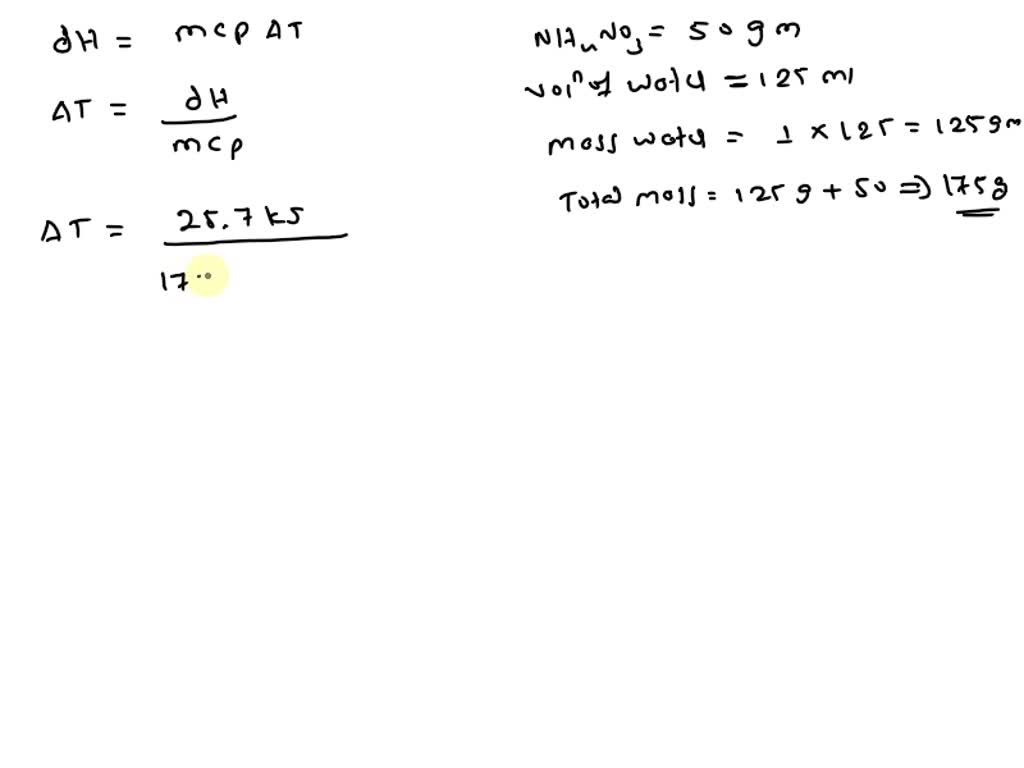 dH = mcp ΔT
ΔT = dH / mcp
ΔT = 25.7 kJ / 17..
NH4NO3 = 50 gm
volⁿ of water = 125 ml
mass water = 1 × 125 = 125 gm
Total mass = 125 g + 50 ⇒ 175g